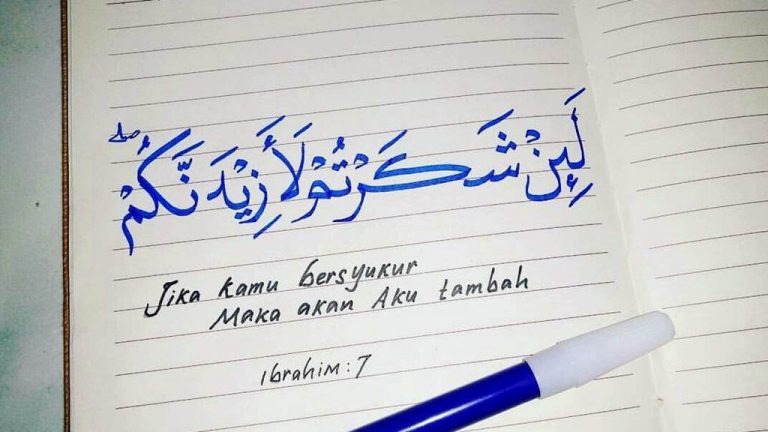 لَئِنْ شَكَرْتُمْ لَأَزِيْدَنَّكُمْ ۖ
Jika kamu bersyukur
Maka akan Aku tambah
Ibrahim : 7